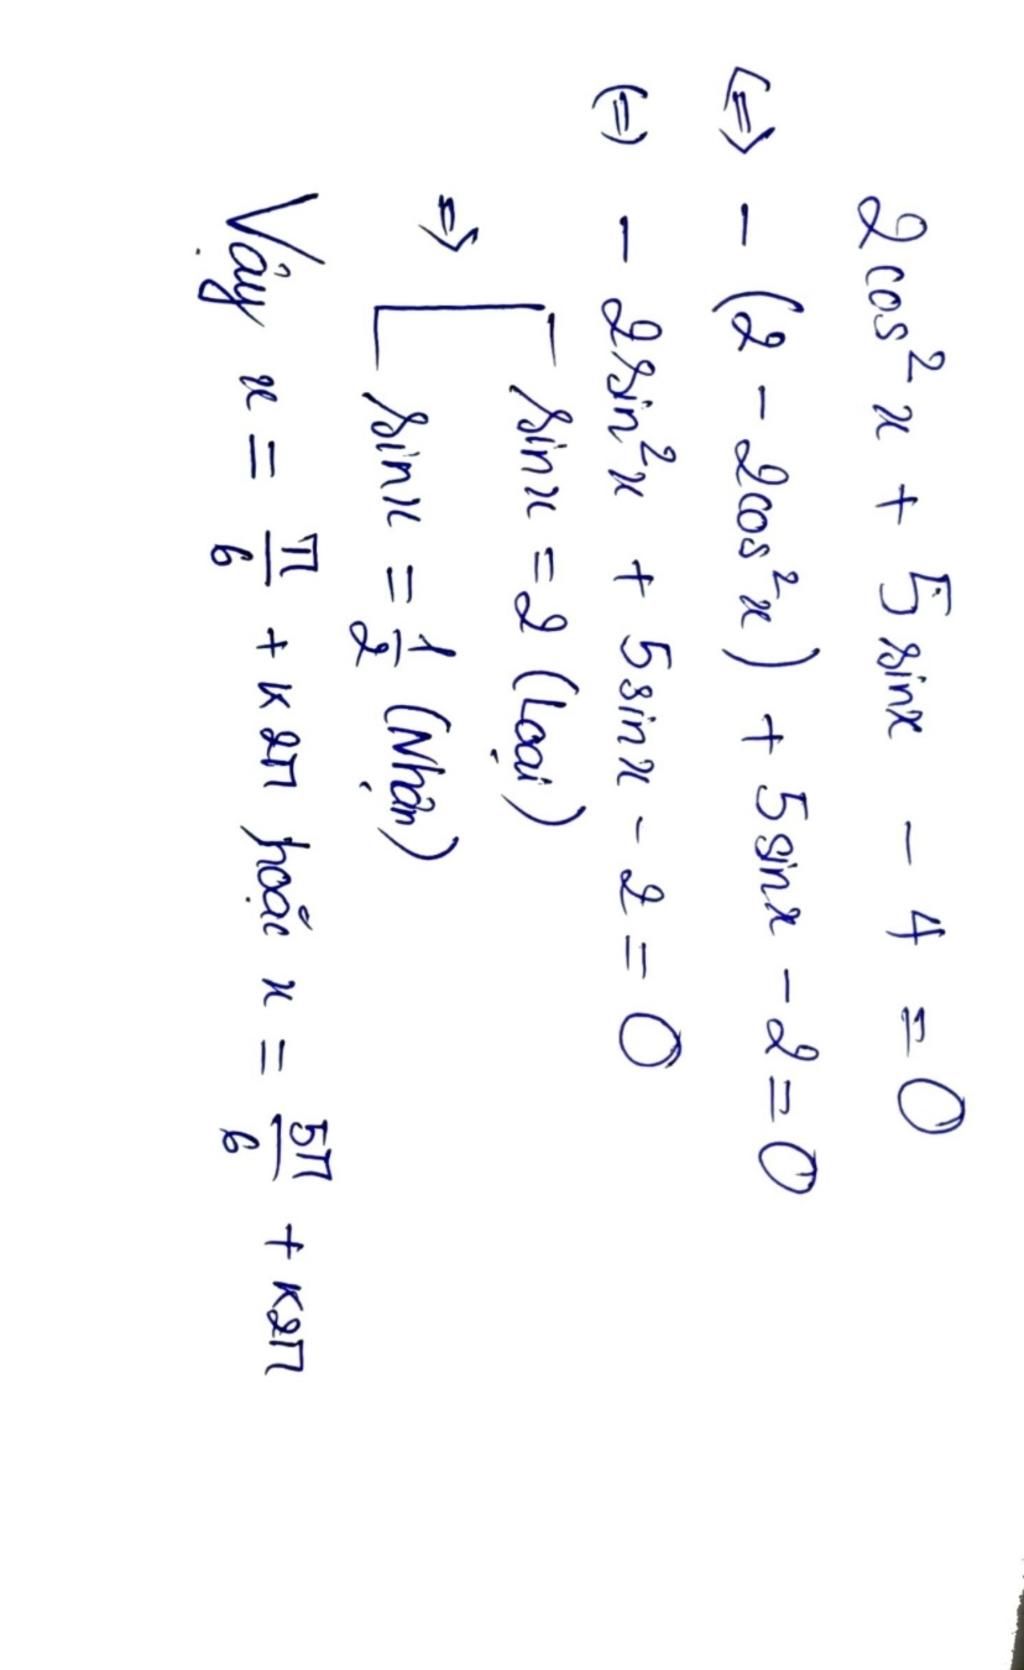 2cos²x + 5sinx - 4 = 0
⇔ - (2 - 2cos²x) + 5sinx - 2 = 0
(=) - 2sin²x + 5sinx - 2 = 0
⇒ [ sinx = 2 (Loại)
sinx = 1/2 (Nhận)
Vậy x = π/6 + k2π hoặc x = 5π/6 + k2π